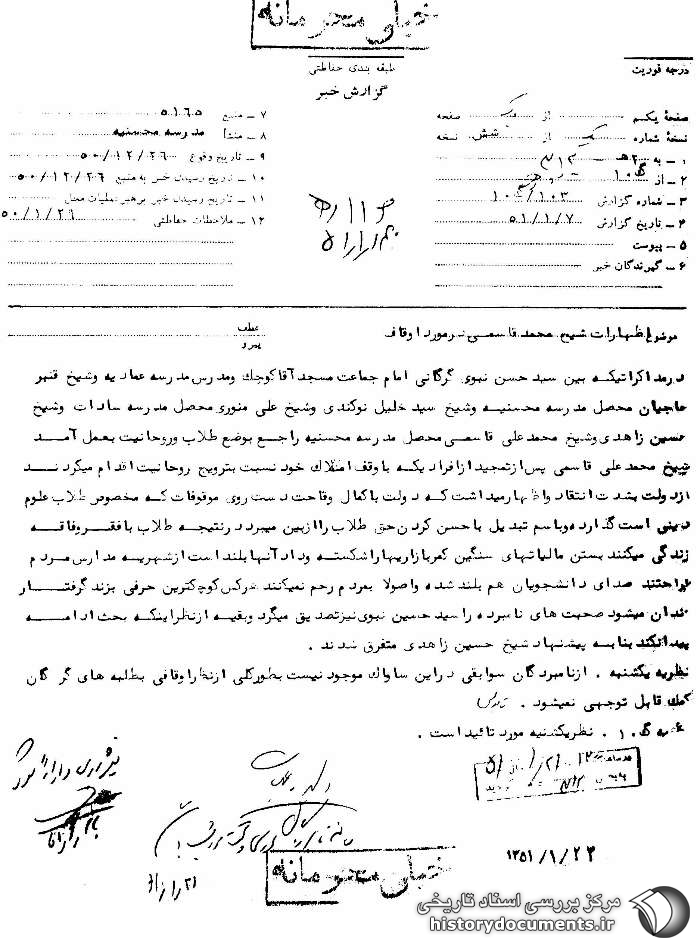 خیلی محرمانه
طبقه بندی حفاظتی
درجه فوریت
گزارش خبر
صفحهٔ یکم از یک صفحه
نسخهٔ شماره یک از شش نسخه
۱ ـ به ۳۱۲
۲ ـ از
۳ ـ شماره گزارش
۴ ـ تاریخ گزارش ۵۱/۱/۷
۵ ـ پیوست
۶ ـ گیرندگان خبر
۷ ـ منبع ۵۱۶۵
۸ ـ منشأ مدرسه محسنیه
۹ ـ تاریخ وقوع ۵۰/۱۲/۲۶
۱۰ ـ تاریخ رسیدن خبر به منبع ۵۰/۱۲/۲۶
۱۱ ـ تاریخ رسیدن خبر برهبر عملیات محل
۱۲ ـ ملاحظات حفاظتی ۵۰/۱/۲۶
موضوع اظهارات شیخ محمد قاسمی در مورد اوقاف
عطف
پیرو
در مذاکراتیکه بین سید حسن نبوی گرگانی امام جماعت مسجد آقا کوچک ومدرس مدرسه عمادیه وشیخ قنبر
حاجیان محصل مدرسه محسنیه وشیخ سید خلیل نوکندی وشیخ علی منوری محصل مدرسه سادات وشیخ
حسین زاهدی وشیخ محمد علی قاسمی محصل مدرسه محسنیه راجع بوضع طلاب وروحانیت بعمل آمد
شیخ محمد علی قاسمی پس از تمجید از افرادیکه با وقف املاک خود نسبت بترویج روحانیت اقدام میکردند
از دولت بشدت انتقاد واظهار میداشت که دولت با کمال وقاحت دست روی موقوفات که مخصوص طلاب علوم
دینی است گذارده وباسم تبدیل باحسن کردن حق طلاب را از بین میبرد در نتیجه طلاب با فقر وفاقه
زندگی میکنند بستن مالیاتهای سنگین کمر بازاریها را شکسته وداد آنها بلند است از شهریه مدارس مردم
ناراحتند صدای دانشجویان هم بلند شده واصولا بمردم رحم نمیکنند هرکس کوچکترین حرفی بزند گرفتار
زندان میشود صحبت های نامبرده را سید حسین نبوی نیز تصدیق میکرد وبقیه از نظر اینکه بحث ادامه
پیدا نکند بنا به پیشنهاد شیخ حسین زاهدی متفرق شدند .
نظریه یکشنبه . از نامبردگان سوابقی در این ساواک موجود نیست بطور کلی از نظر اوقافی بطلبه های گرگان
کمک قابل توجهی نمیشود .
نظر یکشنبه مورد تائید است .
۱۳۵۱/۱/۲۳
خیلی محرمانه
مرکز بررسی اسناد تاریخی
historydocuments.ir